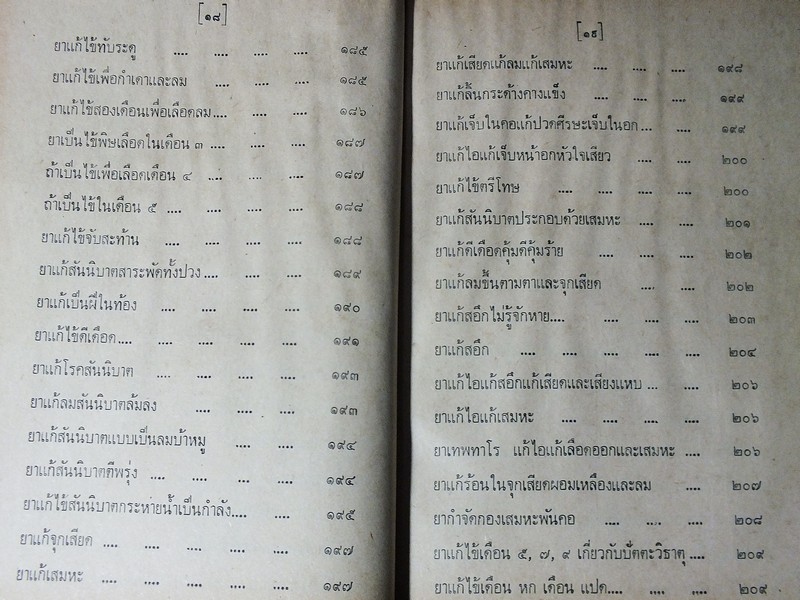 [๑๘]
ยาแก้ไข้ทับระดู .... .... .... .... ๑๘๕
ยาแก้ไข้เพื่อกำเดาและลม .... .... .... ๑๘๕
ยาแก้ไข้สองเดือนเพื่อเลือดลม.... .... .... ๑๘๖
ยาเป็นไข้พิษเลือดในเดือน ๓ .... .... .... ๑๘๗
ถ้าเป็นไข้เพื่อเลือดเดือน ๔ .... .... .... ๑๘๗
ถ้าเป็นไข้ในเดือน ๕ .... .... .... .... ๑๘๘
ยาแก้ไข้จับสะท้าน .... .... .... .... ๑๘๘
ยาแก้สันนิบาตสาระพัดทั้งปวง.... .... .... ๑๘๙
ยาแก้เป็นฝีในท้อง .... .... .... .... ๑๙๐
ยาแก้ไข้ดีเดือด.... .... .... .... .... ๑๙๑
ยาแก้โรคสันนิบาต .... .... .... .... ๑๙๓
ยาแก้ลมสันนิบาตล้มลง .... .... .... ๑๙๓
ยาแก้สันนิบาตแบบเป็นลมบ้าหมู .... .... ๑๙๔
ยาแก้สันนิบาตดีพรุ่ง .... .... ... .... ๑๙๔
ยาแก้ไข้สันนิบาตกระหายน้ำเป็นกำลัง.... .... ๑๙๕
ยาแก้จุกเสียด .... .... .... .... .... ๑๙๗
ยาแก้เสมหะ .... .... .... .... .... ๑๙๗
[๑๙]
ยาแก้เสียดแก้ลมแก้เสมหะ .... .... .... ๑๙๘
ยาแก้ลิ้นกระด้างคางแข็ง .... .... .... ๑๙๙
ยาแก้เจ็บในคอแก้ปวดศีรษะเจ็บในอก... .... ๑๙๙
ยาแก้ไอแก้เจ็บหน้าอกหัวใจเสียว .... .... ๒๐๐
ยาแก้ไข้ตรีโทษ .... .... .... .... ๒๐๐
ยาแก้สันนิบาตประกอบด้วยเสมหะ .... .... ๒๐๑
ยาแก้ดีเดือดคุ้มดีคุ้มร้าย .... .... .... ๒๐๒
ยาแก้ลมขึ้นตามตาและจุกเสียด .... .... ๒๐๒
ยาแก้สอึกไม่รู้จักหาย.... .... .... .... ๒๐๓
ยาแก้สอึก .... .... .... .... .... ๒๐๔
ยาแก้ไอแก้สอึกแก้เสียดและเสียงแหบ ... .... ๒๐๖
ยาแก้ไอแก้เสมหะ .... .... .... .... ๒๐๖
ยาเทพทาโร แก้ไอแก้เลือดออกและเสมหะ .... ๒๐๖
ยาแก้ร้อนในจุกเสียดผอมเหลืองและลม .... ๒๐๗
ยากำจัดกองเสมหะพันคอ .... .... .... ๒๐๘
ยาแก้ไข้เดือน ๕, ๗, ๙ เกี่ยวกับปัตตะวิธาตุ .... ๒๐๙
ยาแก้ไข้เดือน หก เดือน แปด.... .... .... ๒๐๙